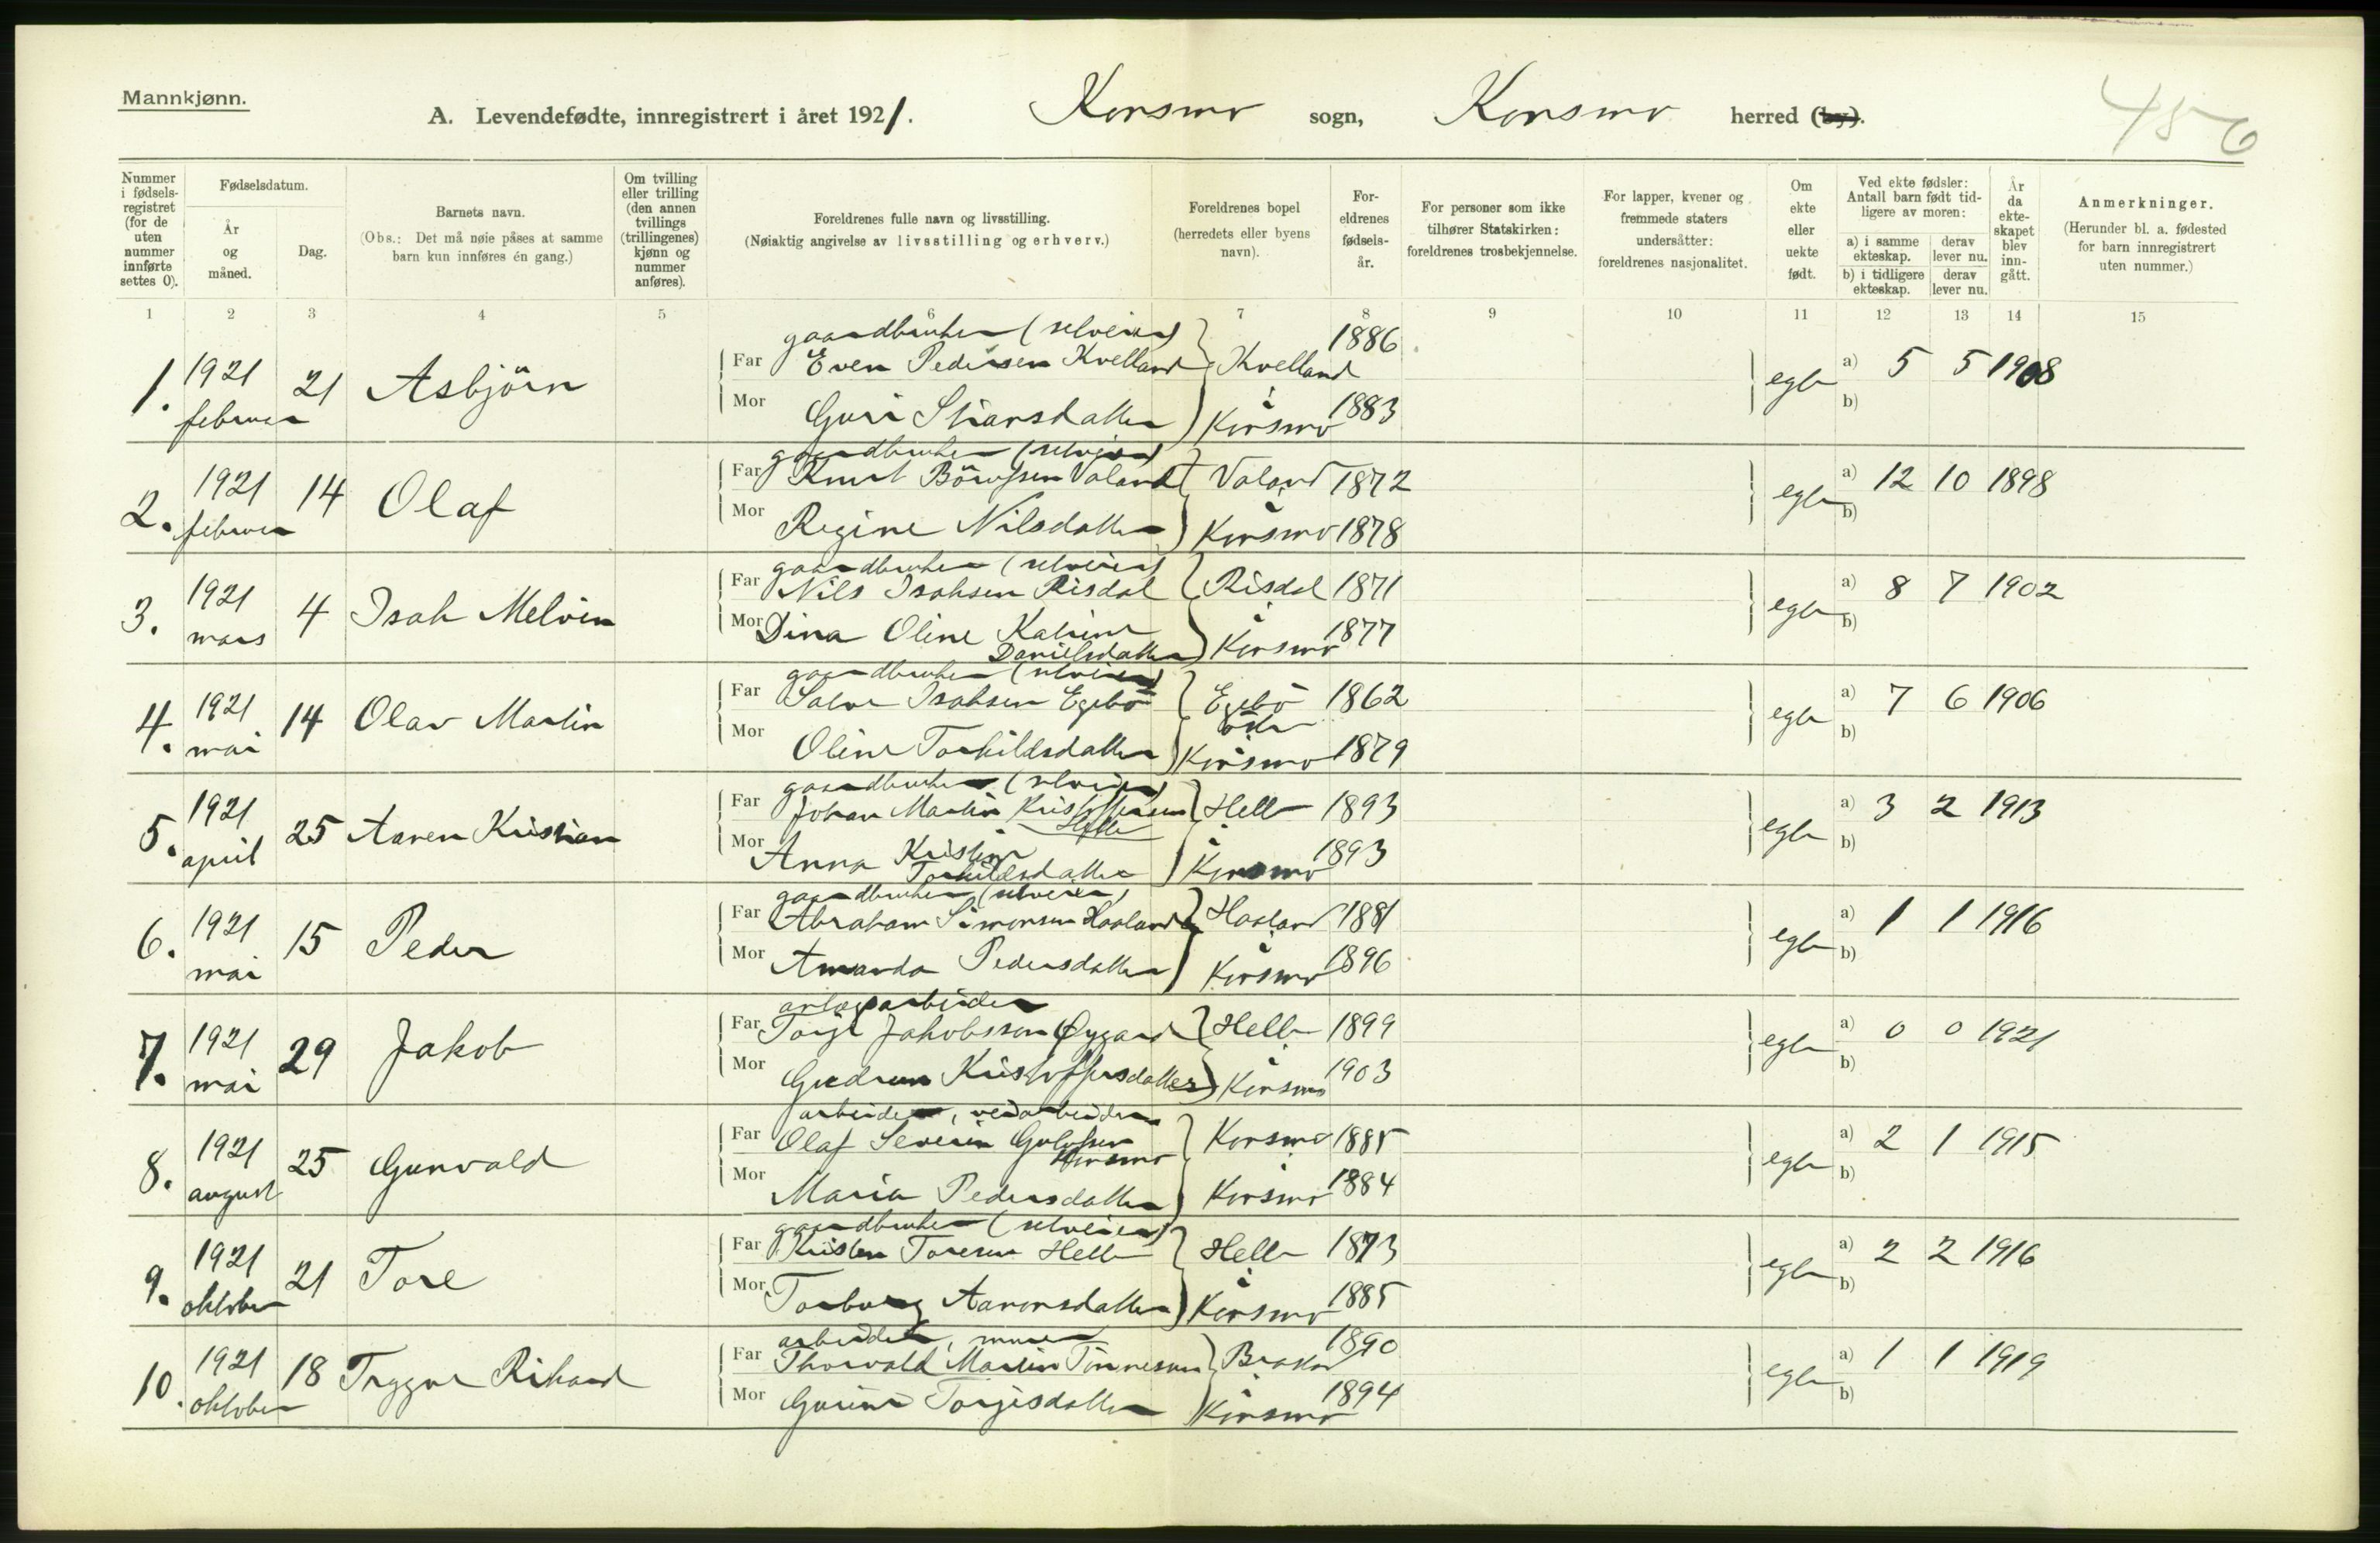 Mannkjønn.
A. Levendefødte, innregistrert i året 1921. Konsmo sogn, Konsmo herred (by).
456
Nummer i fødsels- registret (for de uten nummer innførte settes 0).
Fødselsdatum.
År og måned.
Dag.
Barnets navn.
(Obs.: Det må nøie påses at samme barn kun innføres én gang.)
Om tvilling eller trilling (den annen tvillings (trillingenes) kjønn og nummer anføres).
Foreldrenes fulle navn og livsstilling.
(Nøiaktig angivelse av livsstilling og erhverv.)
Foreldrenes bopel (herredets eller byens navn).
For- eldrenes fødsels- år.
For personer som ikke tilhører Statskirken: foreldrenes trosbekjennelse.
For lapper, kvener og fremmede staters undersåtter: foreldrenes nasjonalitet.
Om ekte eller uekte født.
Ved ekte fødsler: Antall barn født tid- ligere av moren:
a) i samme ekteskap.
derav lever nu.
b) i tidligere ekteskap.
derav lever nu.
År da ekte- skapet blev inn- gått.
Anmerkninger.
(Herunder bl. a. fødested for barn innregistrert uten nummer.)
1 2 3 4 5 6 7 8 9 10 11 12 13 14 15
gaardbruker (selveier) 1886
1. 1921 februar 21 Asbjörn Far Even Pedersen Kvelland Kvelland egte a) 5 5 1908
Mor Guri Stiansdatter i Konsmo 1883 b)
gaardbruker (selveier)
2. 1921 februar 14 Olaf Far Knut Börufsen Valand Valand 1872 egte a) 12 10 1898
Mor Regine Nilsdatter i Konsmo 1878 b)
gaardbruker (selveier)
3. 1921 mars 4 Isak Melvin Far Nils Isaksen Risdal Risdal 1871 egte a) 8 7 1902
Mor Dina Oline Katrine Danielsdatter i Konsmo 1877 b)
gaardbruker (selveier)
4. 1921 mai 14 Olav Martin Far Salve Isaksen Egebö Egebö 1862 egte a) 7 6 1906
Mor Oline Torkildsdatter i Konsmo 1879 b)
gaardbruker (selveier)
5. 1921 april 25 Aanen Kristian Far Johan Martin Kristoffersen Helle Helle 1893 egte a) 3 2 1913
Mor Anna Kristine Torkildsdatter i Konsmo 1893 b)
gaardbruker (selveier)
6. 1921 mai 15 Peder Far Abraham Simonsen Haaland Haaland 1881 egte a) 1 1 1916
Mor Amanda Pedersdatter i Konsmo 1896 b)
anlægsarbeider
7. 1921 mai 29 Jakob Far Torje Jakobsson Øygard Helle 1899 egte a) 0 0 1921
Mor Gudrun Kristoffersdatter i Konsmo 1903 b)
arbeider, veiarbeider
8. 1921 august 25 Gunvald Far Olaf Severin Konsmo Konsmo 1885 egte a) 2 1 1915
Mor Maria Pedersdatter i Konsmo 1884 b)
gaardbruker (selveier)
9. 1921 oktober 21 Tore Far Kristen Toresen Helle Helle 1873 egte a) 2 2 1916
Mor Torborg Aanonsdatter i Konsmo 1885 b)
arbeider, murer 1890
10. 1921 oktober 18 Tryggve Rikard Far Thorvald Martin Tönnesen egte a) 1 1 1919
Mor Gurine Torjisdatter i Konsmo 1894 b)